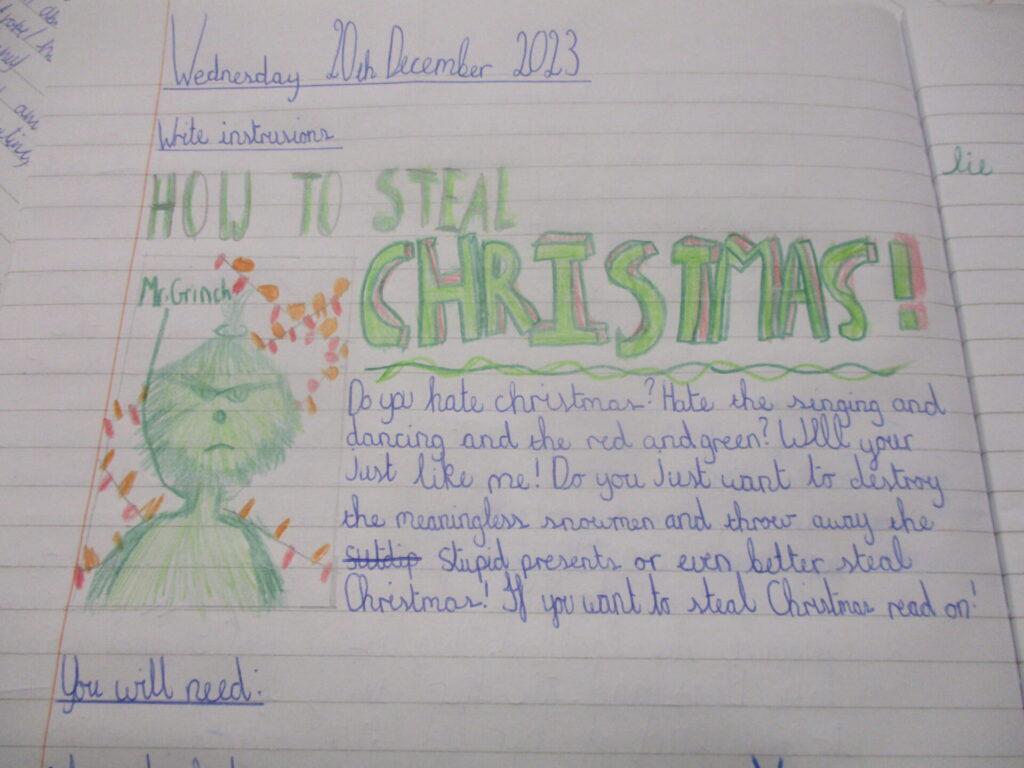 Wednesday 20th December 2023
Write instrusions
HOW TO STEAL
CHRISTMAS!
Mr. Grinch
Do you hate christmas? Hate the singing and
dancing and the red and green? Well your
Just like me! Do you Just want to destroy
the meaningless snowmen and throw away the
sutdip stupid presents or even better steal
Christmas! If you want to steal Christmas read on!
You will need:
lie